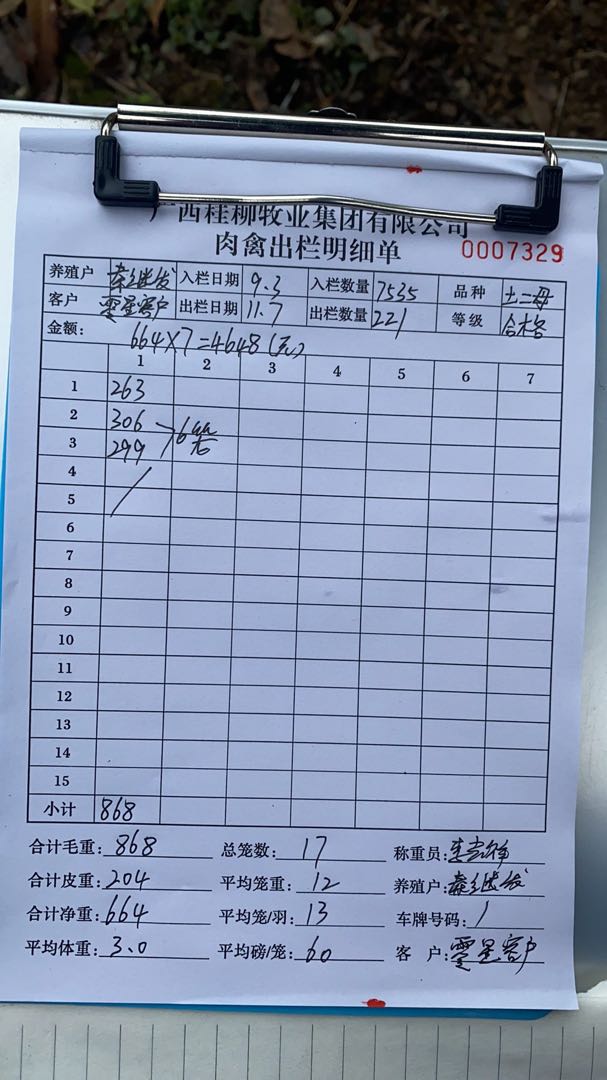 广西桂柳牧业集团有限公司
肉禽出栏明细单 0007329
养殖户 入栏日期 9.3 入栏数量 7535 品种 土二母
客户 零星客户 出栏日期 11.7 出栏数量 221 等级 合格
金额: 664×7=4648(元)
1 2 3 4 5 6 7
1 263
2 306
3 299 6笼
4
5
6
7
8
9
10
11
12
13
14
15
小计 868
合计毛重: 868 总笼数: 17 称重员:
合计皮重: 204 平均笼重: 12 养殖户:
合计净重: 664 平均笼/羽: 13 车牌号码: /
平均体重: 3.0 平均磅/笼: 60 客 户: 零星客户